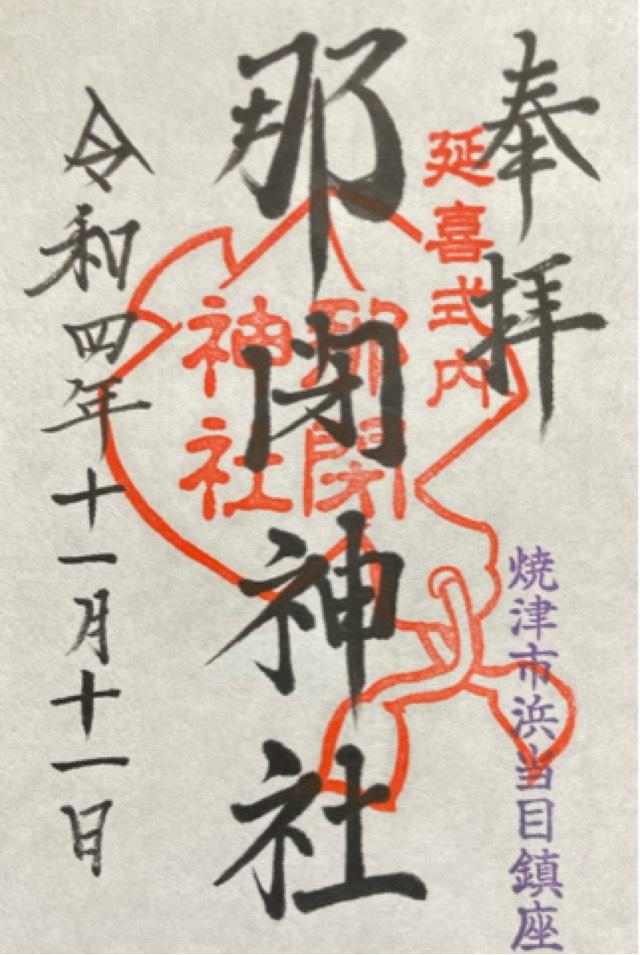 奉拝
延喜式内
焼津市浜当目鎮座
那閉神社
那閉
神社
令和四年十一月十一日